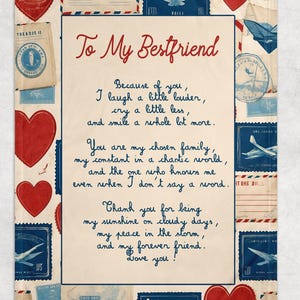 To My Bestfriend
Because of you,
I laugh a little louder,
cry a little less,
and smile a whole lot more.
You are my chosen family,
my constant in a chaotic world,
and the one who knows me
even when I don't say a word.
Thank you for being
my sunshine on cloudy days,
my peace in the storm,
and my forever friend.
Love you!